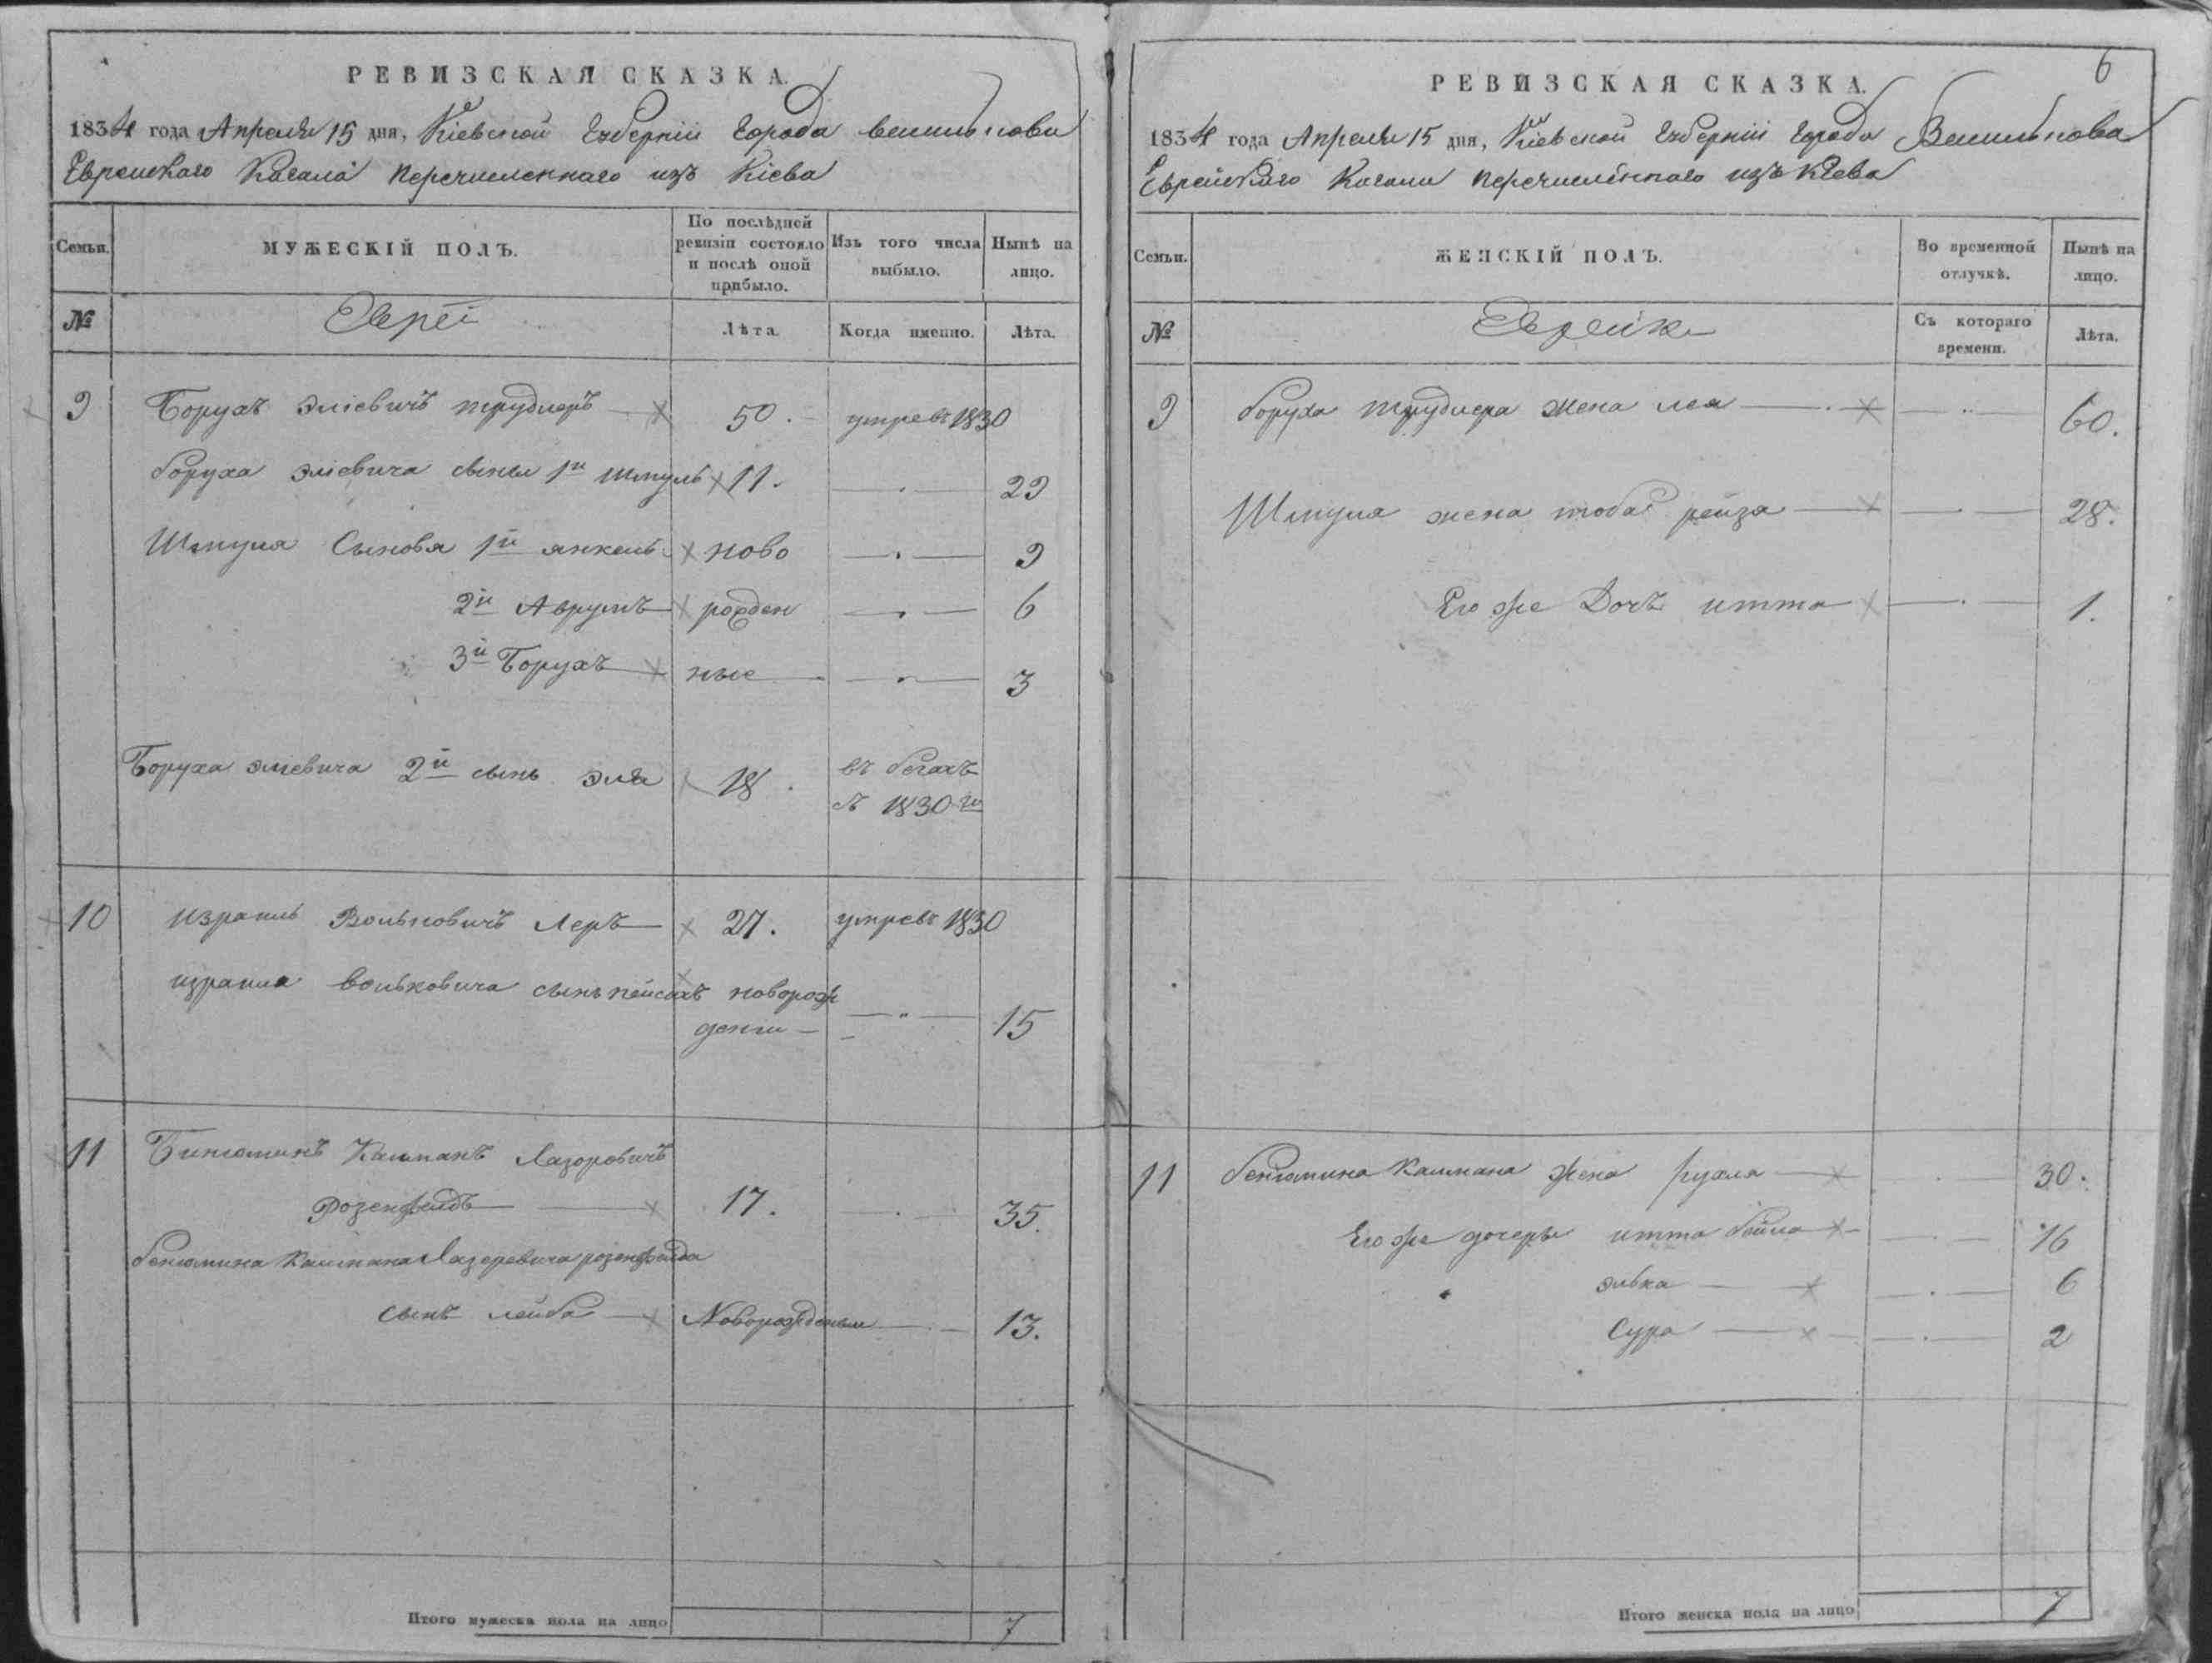 РЕВИЗСКАЯ СКАЗКА.
1834 года Апреля 15 дня, Кіевской Губерніи Города Василькова
Еврейскаго Кагала перечисленнаго изъ Кіева
Семьи.
МУЖЕСКІЙ ПОЛЪ.
По послѣдней ревизіи состояло и послѣ оной прибыло.
Изъ того числа выбыло.
Нынѣ на лицо.
№
Еврей
Лѣта.
Когда именно.
Лѣта.
9 Борухъ Эліевичъ трудлеръ 50. умревъ 1830
боруха эліевича сыны 1й Шмуль 11. 29
Шмуля Сыновя 1й янкель ново 9
2й Аврумъ рожден 6
3й Борухъ ные 3
Боруха эліевича 2й сынъ эля 18. въ бегахъ
съ 1830го
10 Израиль Вольковичъ Леръ 27. умревъ 1830
израиля вольковича сынъ пейсахъ иоворож
дении 15
11 Бинюминъ Калманъ Лазоровичъ
Розенфелдъ 17. 35.
бенюмина Калмана Лазеревича розенфелда
сынъ лейба Новорожденыи 13.
Итого мужеска пола на лицо 7
6
РЕВИЗСКАЯ СКАЗКА.
1834 года Апреля 15 дня, Кіевской Губерніи Города Василькова
Еврейскаго Кагала перечисленнаго изъ Кіева
Семьи.
ЖЕНСКІЙ ПОЛЪ.
Во временной отлучкѣ.
Нынѣ на лицо.
№
Еврейки
Съ котораго времени.
Лѣта.
9 боруха трудлера жена лея 60.
Шмуля жена тоба рейза 28.
Его же Дочъ итта 1.
11 бенюмина Калмана жена рухля 30.
Его же дочеры итта бейла 16
элька 6
Сура 2
Итого женска пола на лицо 7